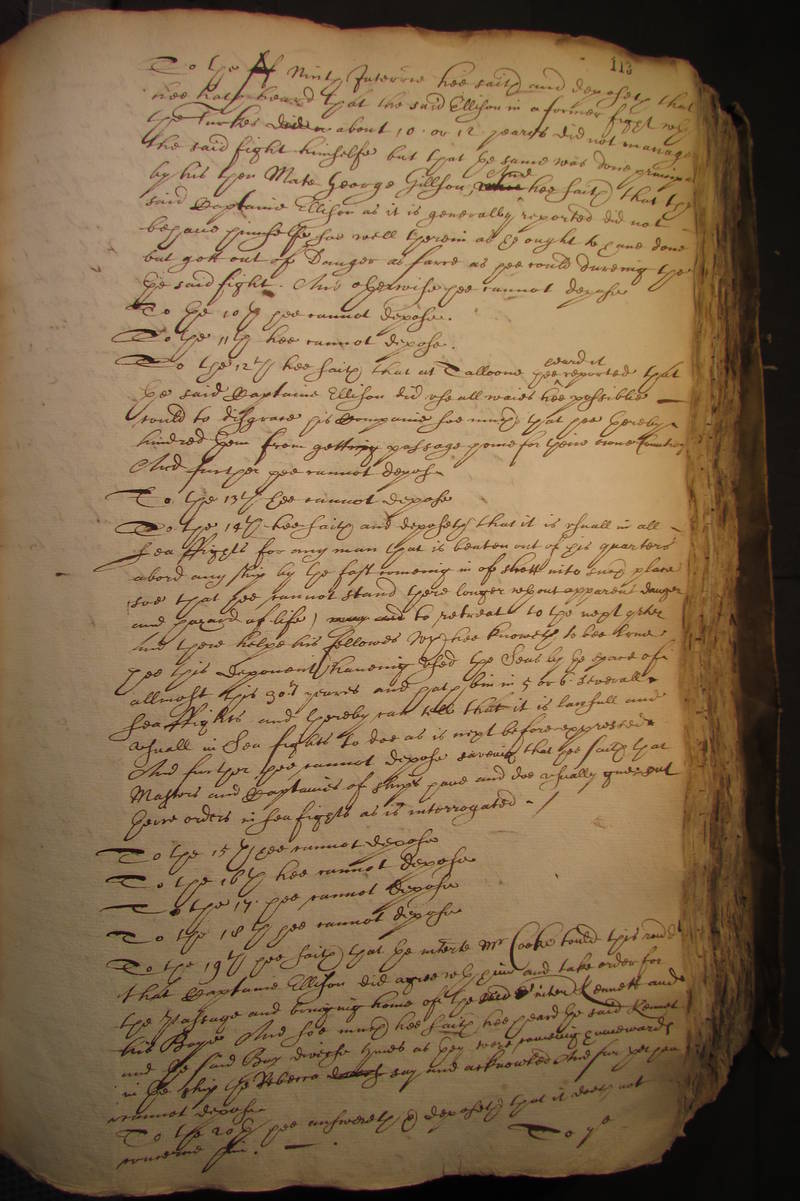 113
To the Nint Interrie hee saith and deposeth that
hee hath heard that the said Ellison in a former fight wth
the Turkes about 10 or 12 yeares did not manage
the said fight himselfe but that the same was done
by his then Mate George Gillson, And hee saith that the
said Captaine Ellison as it is generalby reported did not
behave himselfe soe well therein as he ought to have done
but gott out of Danger as farre as hee could dureing the
the said fight. And otherwise hee cannot depose
To the 10th hee cannot depose.
To the 11th hee cannot depose.
To the 12th hee saith that at Talloone hee heard it reported that
the said Captaine Ellison did use all waies hee possiblie
could to disgrace his Companie soe much that hee thereby
hindred them from getting passage home for their owne Countrey
And further hee cannot depose
To the 13th hee cannot depose
To the 14th hee saith and deposeth that it is usuall in all
sea ffights for any man that is beaten out of his quarters
abord any ship by the fast comeing in of shott into such place
soe that hee cannot stand there longer without apparent danger
and hazard of life, to retreat to the next
and there helpe his fellowes wch hee knoweth to bee true
hee this deponent haveing used the Seas by the space of
allmost this 30ty yeares and hath bin in 5 or 6 severall
sea ffights and thereby can tell that it is lawfull and
usuall in Sea fights to doe as is next before expressed
And further hee cannot depose saveing that hee saith that
Masters and Captaines of ships have and doe usually give out
theire orders in sea fights as is interrogated
To the 15th hee cannot depose
To the 16th hee cannot depose
To the 17. hee cannot depose
To the 18th hee cannot depose
To the 19th hee saith that the Mr Cooke tould this
that Captaine Ellison did agree wth him and take order for
the Passage and bringing home of the Kennett and
his Boye And soe much hee saith hee heard the said Kennet
and the said Boy diverse tymes as they were comeing homewards
in the ship the Rebecca say and acknowled And further hee
cannot depose
To the 20th hee answereth & deposeth that it doeth not
concerne him.
To ye